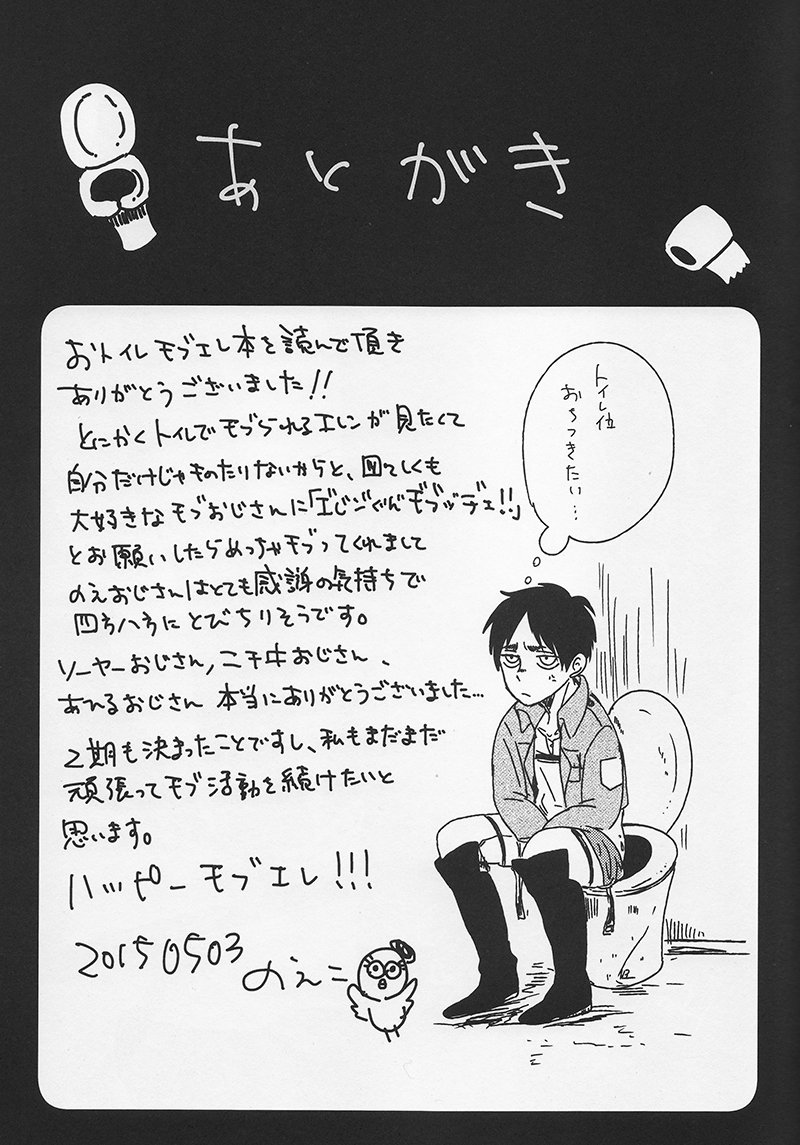 あとがき
おトイレモブエレ本を読んで頂き
ありがとうございました!!
とにかくトイレでモブられるエレンが見たくて
自分だけじゃものたりないからと、図々しくも
大好きなモブおじさんに「エレンぐんモブッデェ!!」
とお願いしたらめっちゃモブってくれまして
のえおじさんはとても感謝の気持ちで
四方八方にとびちりそうです。
ソーヤーおじさん,ニチ牛おじさん、
あひるおじさん 本当にありがとうございました…
2期も決まったことですし、私もまだまだ
頑張ってモブ活動を続けたいと
思います。
ハッピーモブエレ!!!
20150503 のえこ
トイレ位
おちつきたい…